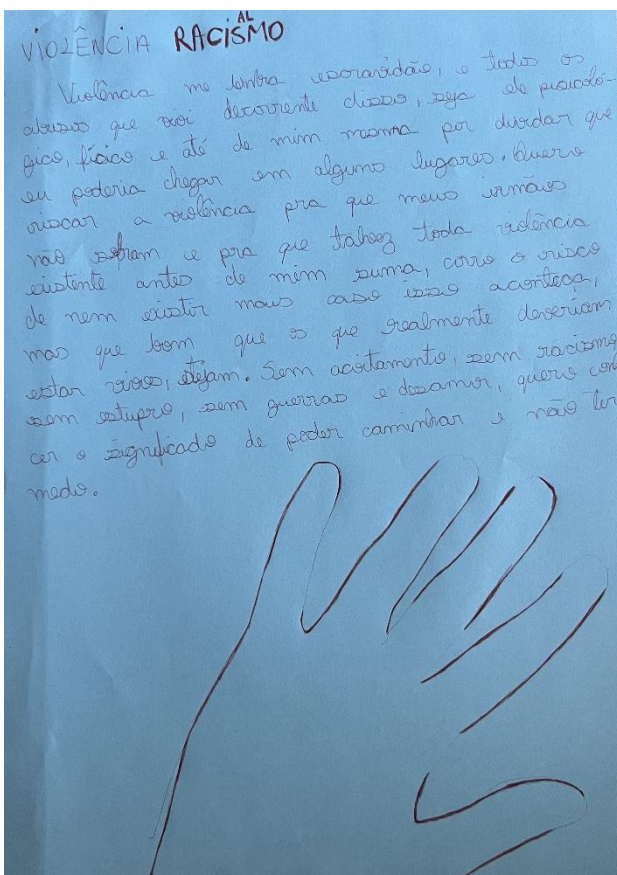 VIOLÊNCIA RACISMO
AL
Violência me lembra escravidão, e todos os
abusos que vivi decorrente disso, seja ele psicoló-
gico, físico e até de mim mesma por duvidar que
eu poderia chegar em alguns lugares. Quero
riscar a violência pra que meus irmãos
não sofram e pra que talvez toda violência
existente antes de mim suma, corro o risco
de nem existir mais caso isso aconteça,
mas que bom que os que realmente deveriam
estar vivos, estejam. Sem açoitamento, sem racismo
sem estupro, sem guerras e desamor, quero conhe
cer o significado de poder caminhar e não ter
medo.